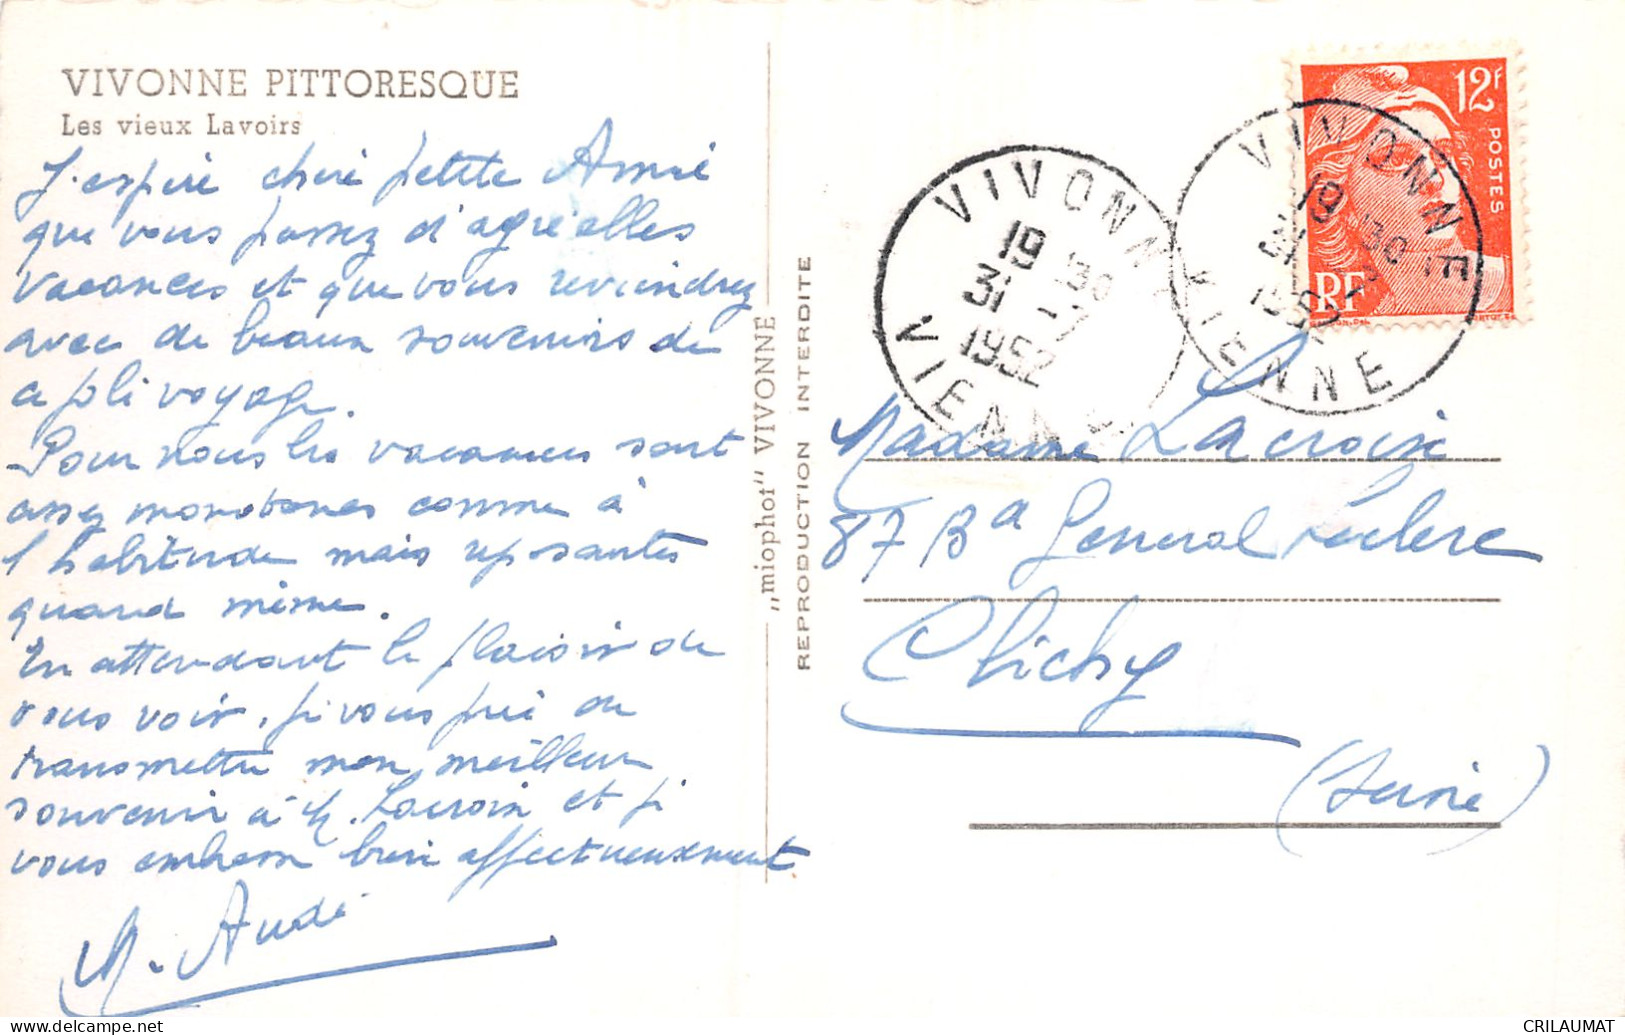 VIVONNE PITTORESQUE
Les vieux Lavoirs
J'espère chère petite Amie
que vous passez d'agréables
vacances et que vous reviendrez
avec de beaux souvenirs de
ce joli voyage.
Pour nous les vacances sont
assez monotones comme à
l'habitude mais reposantes
quand même.
En attendant le plaisir de
vous voir, je vous prie de
transmettre mon meilleur
souvenir à M. Lacroix et je
vous embrasse bien affectueusement
M. Audé
„miophot" VIVONNE
REPRODUCTION INTERDITE
VIVONNE
19 30
31 - 7
1952
VIENNE
VIVONNE
19 30
31 - 7
1952
VIENNE
12F
POSTES
RF
Madame Lacroix
87 Bd General Leclerc
Clichy
(Seine)
CRILAUMAT